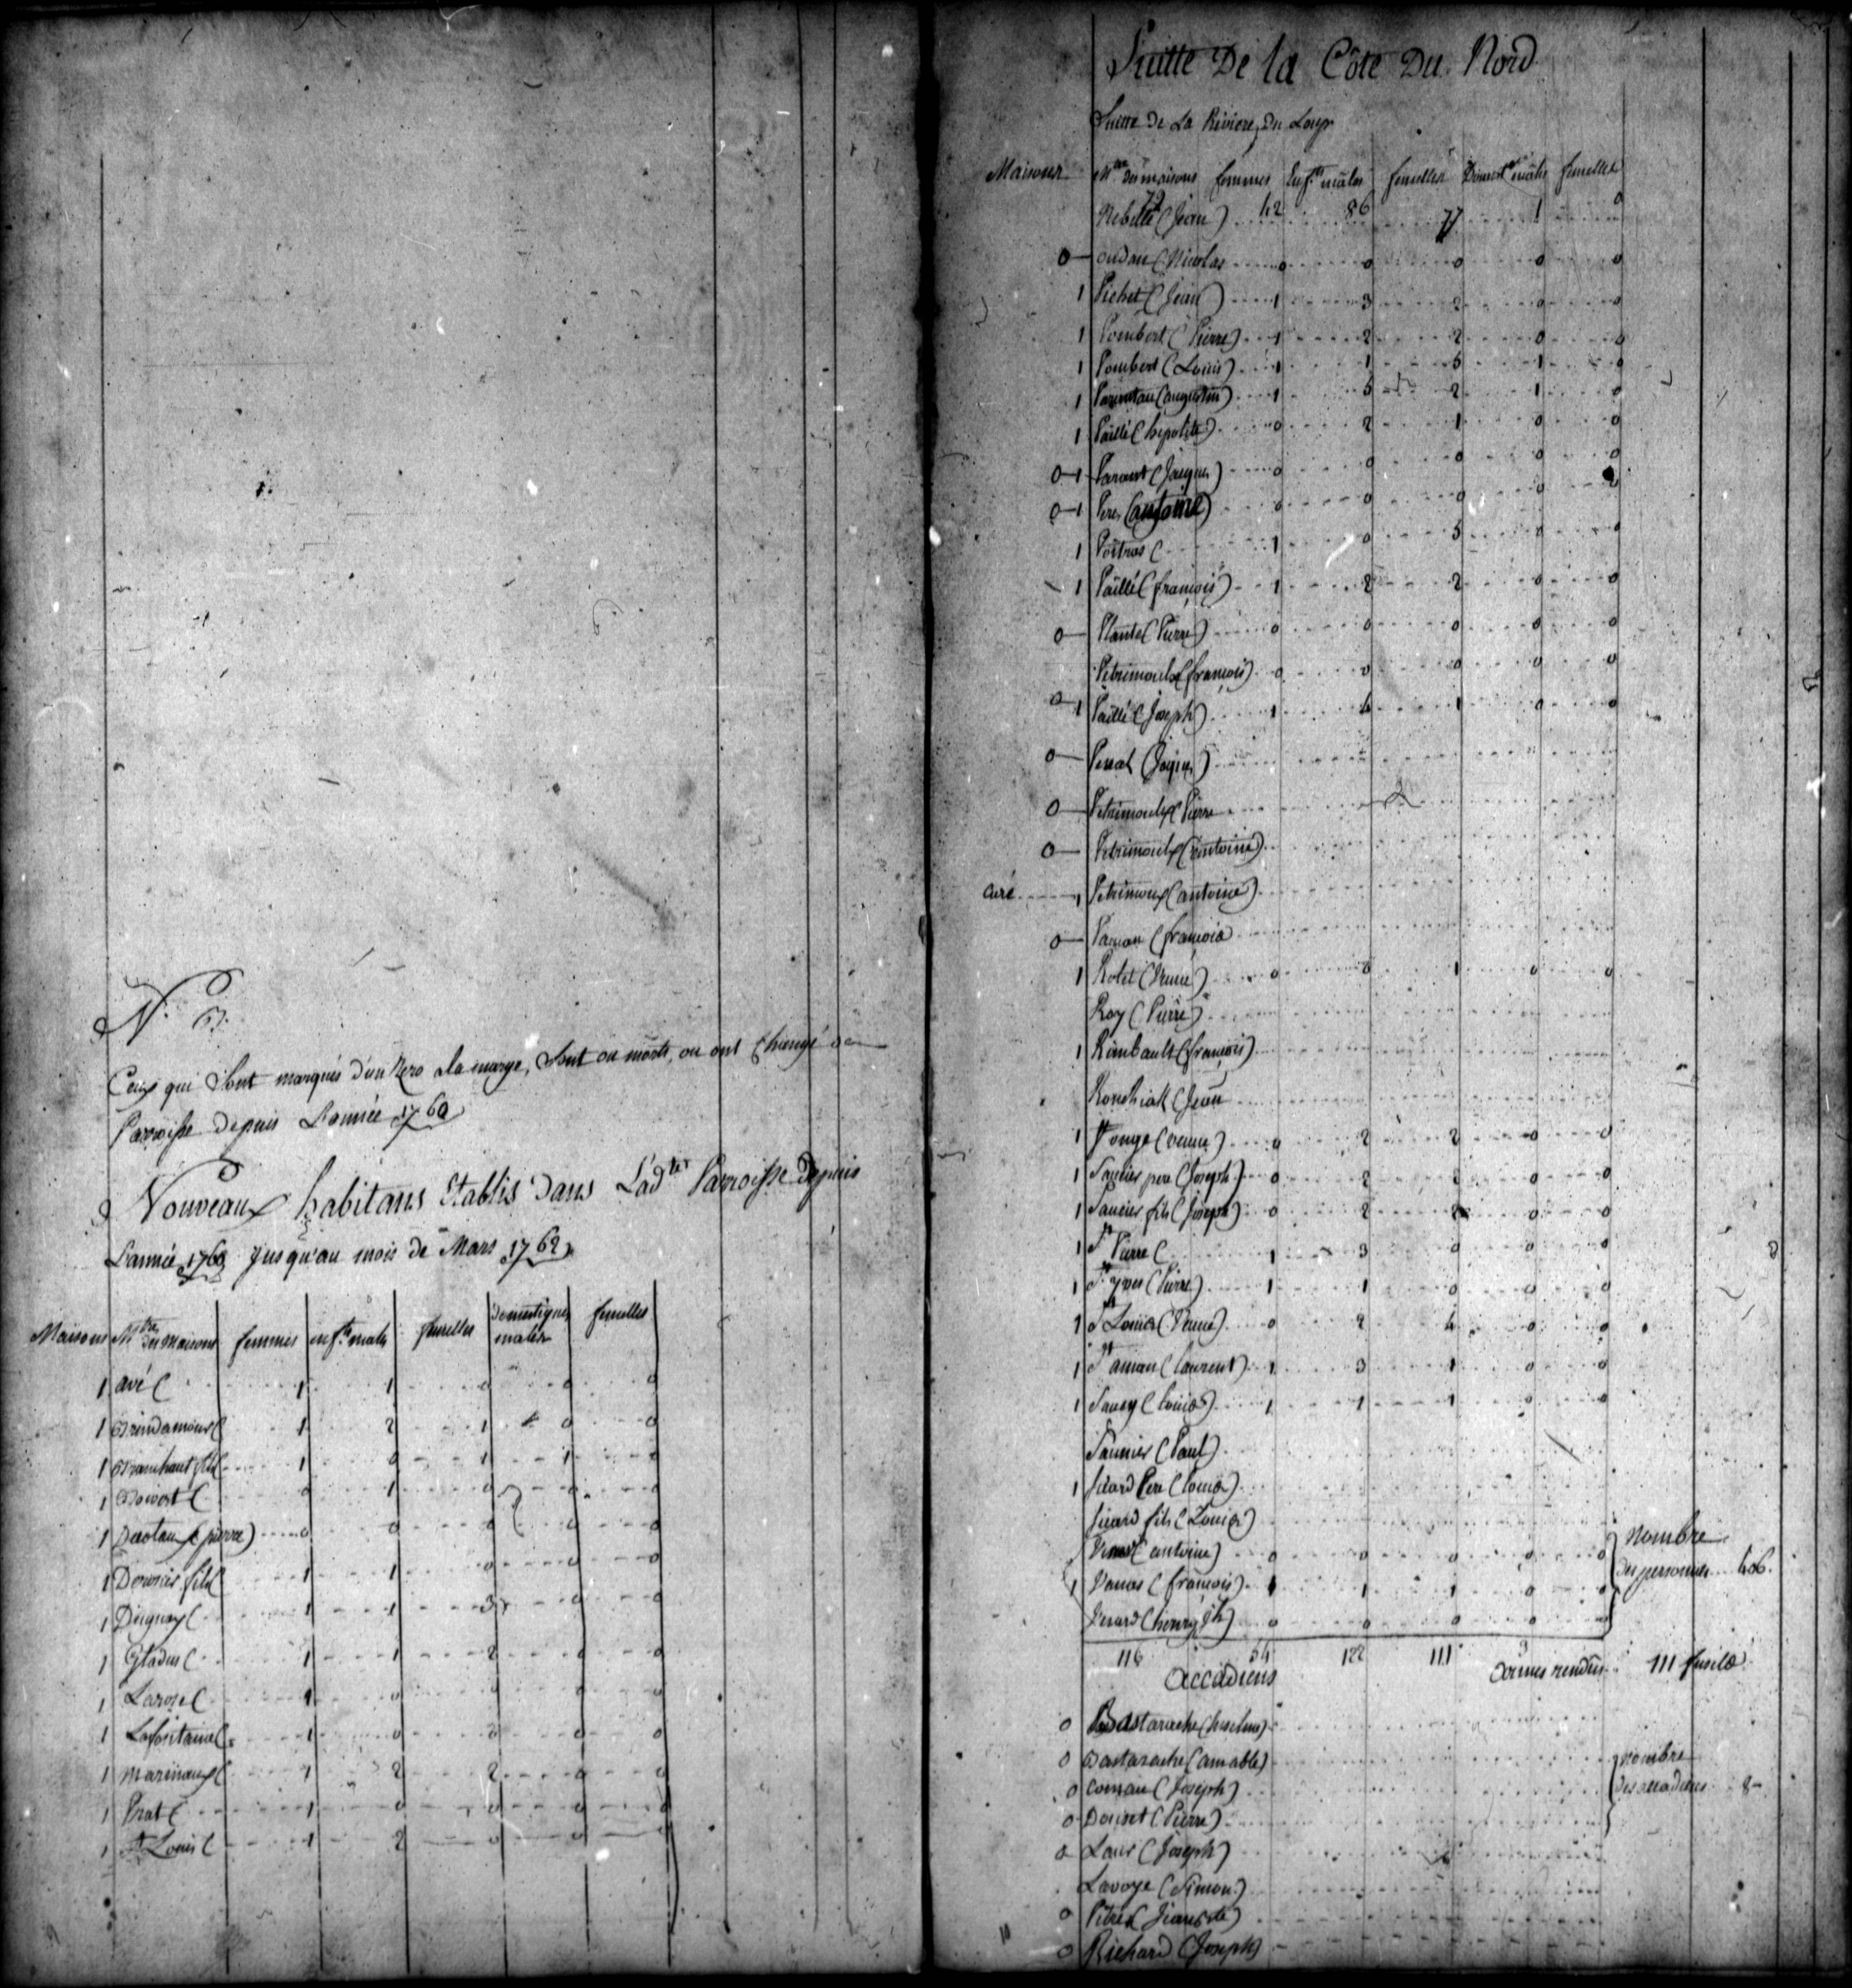 N.B.
Ceux qui sont marqués d'un Zero a la marge, sont ou morts, ou ont changé de
Parroisse depuis L'année 1760
Nouveaux habitans Etablis dans Lad.te Parroisse depuis
L'année 1760 jusqu'au mois de Mars 1762
Maisons M.tres des maisons femmes enf.ts males femelles domestiques males femelles
1 avé ( 1 1 0 0 0
1 Brindamour ( 1 2 1 0 0
1 fils ( 1 0 1 1 0
1 Boivert ( 0 1 0 0 0
1 (pierre) 0 0 0 0 0
1 fils ( 1 1 0 0 0
1 Duguay ( 1 1 3 0 0
1 Gladus ( 1 1 2 0 0
1 Larose ( 1 0 0 0 0
1 Lafontaine ( 1 0 0 0
1 marineaux ( 1 2 2 0 0
1 Prat ( 1 0 0 0 0
1 St Louis ( 1 2 0 0 0
Suitte De la Côte Du Nord
Suitte De La Riviere Du Loup
Maisons M.tres des maisons femmes Enf.ts mâles femelles Domest. mâles femelles
72 42 86 77 1 0
(Jean)
0 (Nicolas 0 0 0 0 0
1 Pichet (Jean) 1 3 2 0 0
1 Pombert (Pierre) 1 2 2 0 0
1 Pombert (Louis) 1 1 5 1 0
1 (augustin) 1 5 2 1 0
1 Paillé (hypolite) 0 2 1 0 0
0 1 Parant (Jacques) 0 0 0 0 0
0 1 (antoine) 0 0 0 0 0
1 Poitras ( 1 0 5 0 0
1 Paillé (francois) 1 2 2 0 0
0 Plante (Pierre) 0 0 0 0 0
Petrimoulx (francois) 0 0 0 0 0
0 1 Paillé (Joseph) 1 4 1 0 0
0 (Jaques)
0 Petrimoulx (Pierre
0 Petrimoulx (antoine)
curé 1 Petrimoux (antoine)
0 (francois
1 (veuve) 0 0 1 0 0
Roy (Pierre)
1 Rimbault (francois)
(Jean
1 (veuve) 0 2 2 0 0
1 Saucier pere (Joseph) 0 2 2 0 0
1 Saucier fils (Joseph) 0 2 2 0 0
1 St Pierre ( 1 3 0 0 0
1 St yves (Pierre) 1 1 0 0 0
1 St Louis (Veuve) 0 2 4 0 0
1 St aman (laurent) 1 3 1 0 0
1 Savoy (louis) 1 1 1 0 0
Saunier (Paul)
1 Sicard Pere (louis)
Sicard fils (Louis)
(antoine) 0 0 0 0 0
1 Vanas (francois) 1 1 1 0 0
(henry 0 0 0 0 0
Nombre
des personnes 406.
116 54 122 111 3
armes rendus 111 fusils
accadiens
0 Bastarache (anselme)
0 Bastarache (amable)
0 Comau (Joseph)
0 Doucet (Pierre)
0 Laur (Joseph)
Lavoye (Simon)
0 Pitre (Jean Bte)
0 Richard (Joseph)
Nombre
des accadiens 8